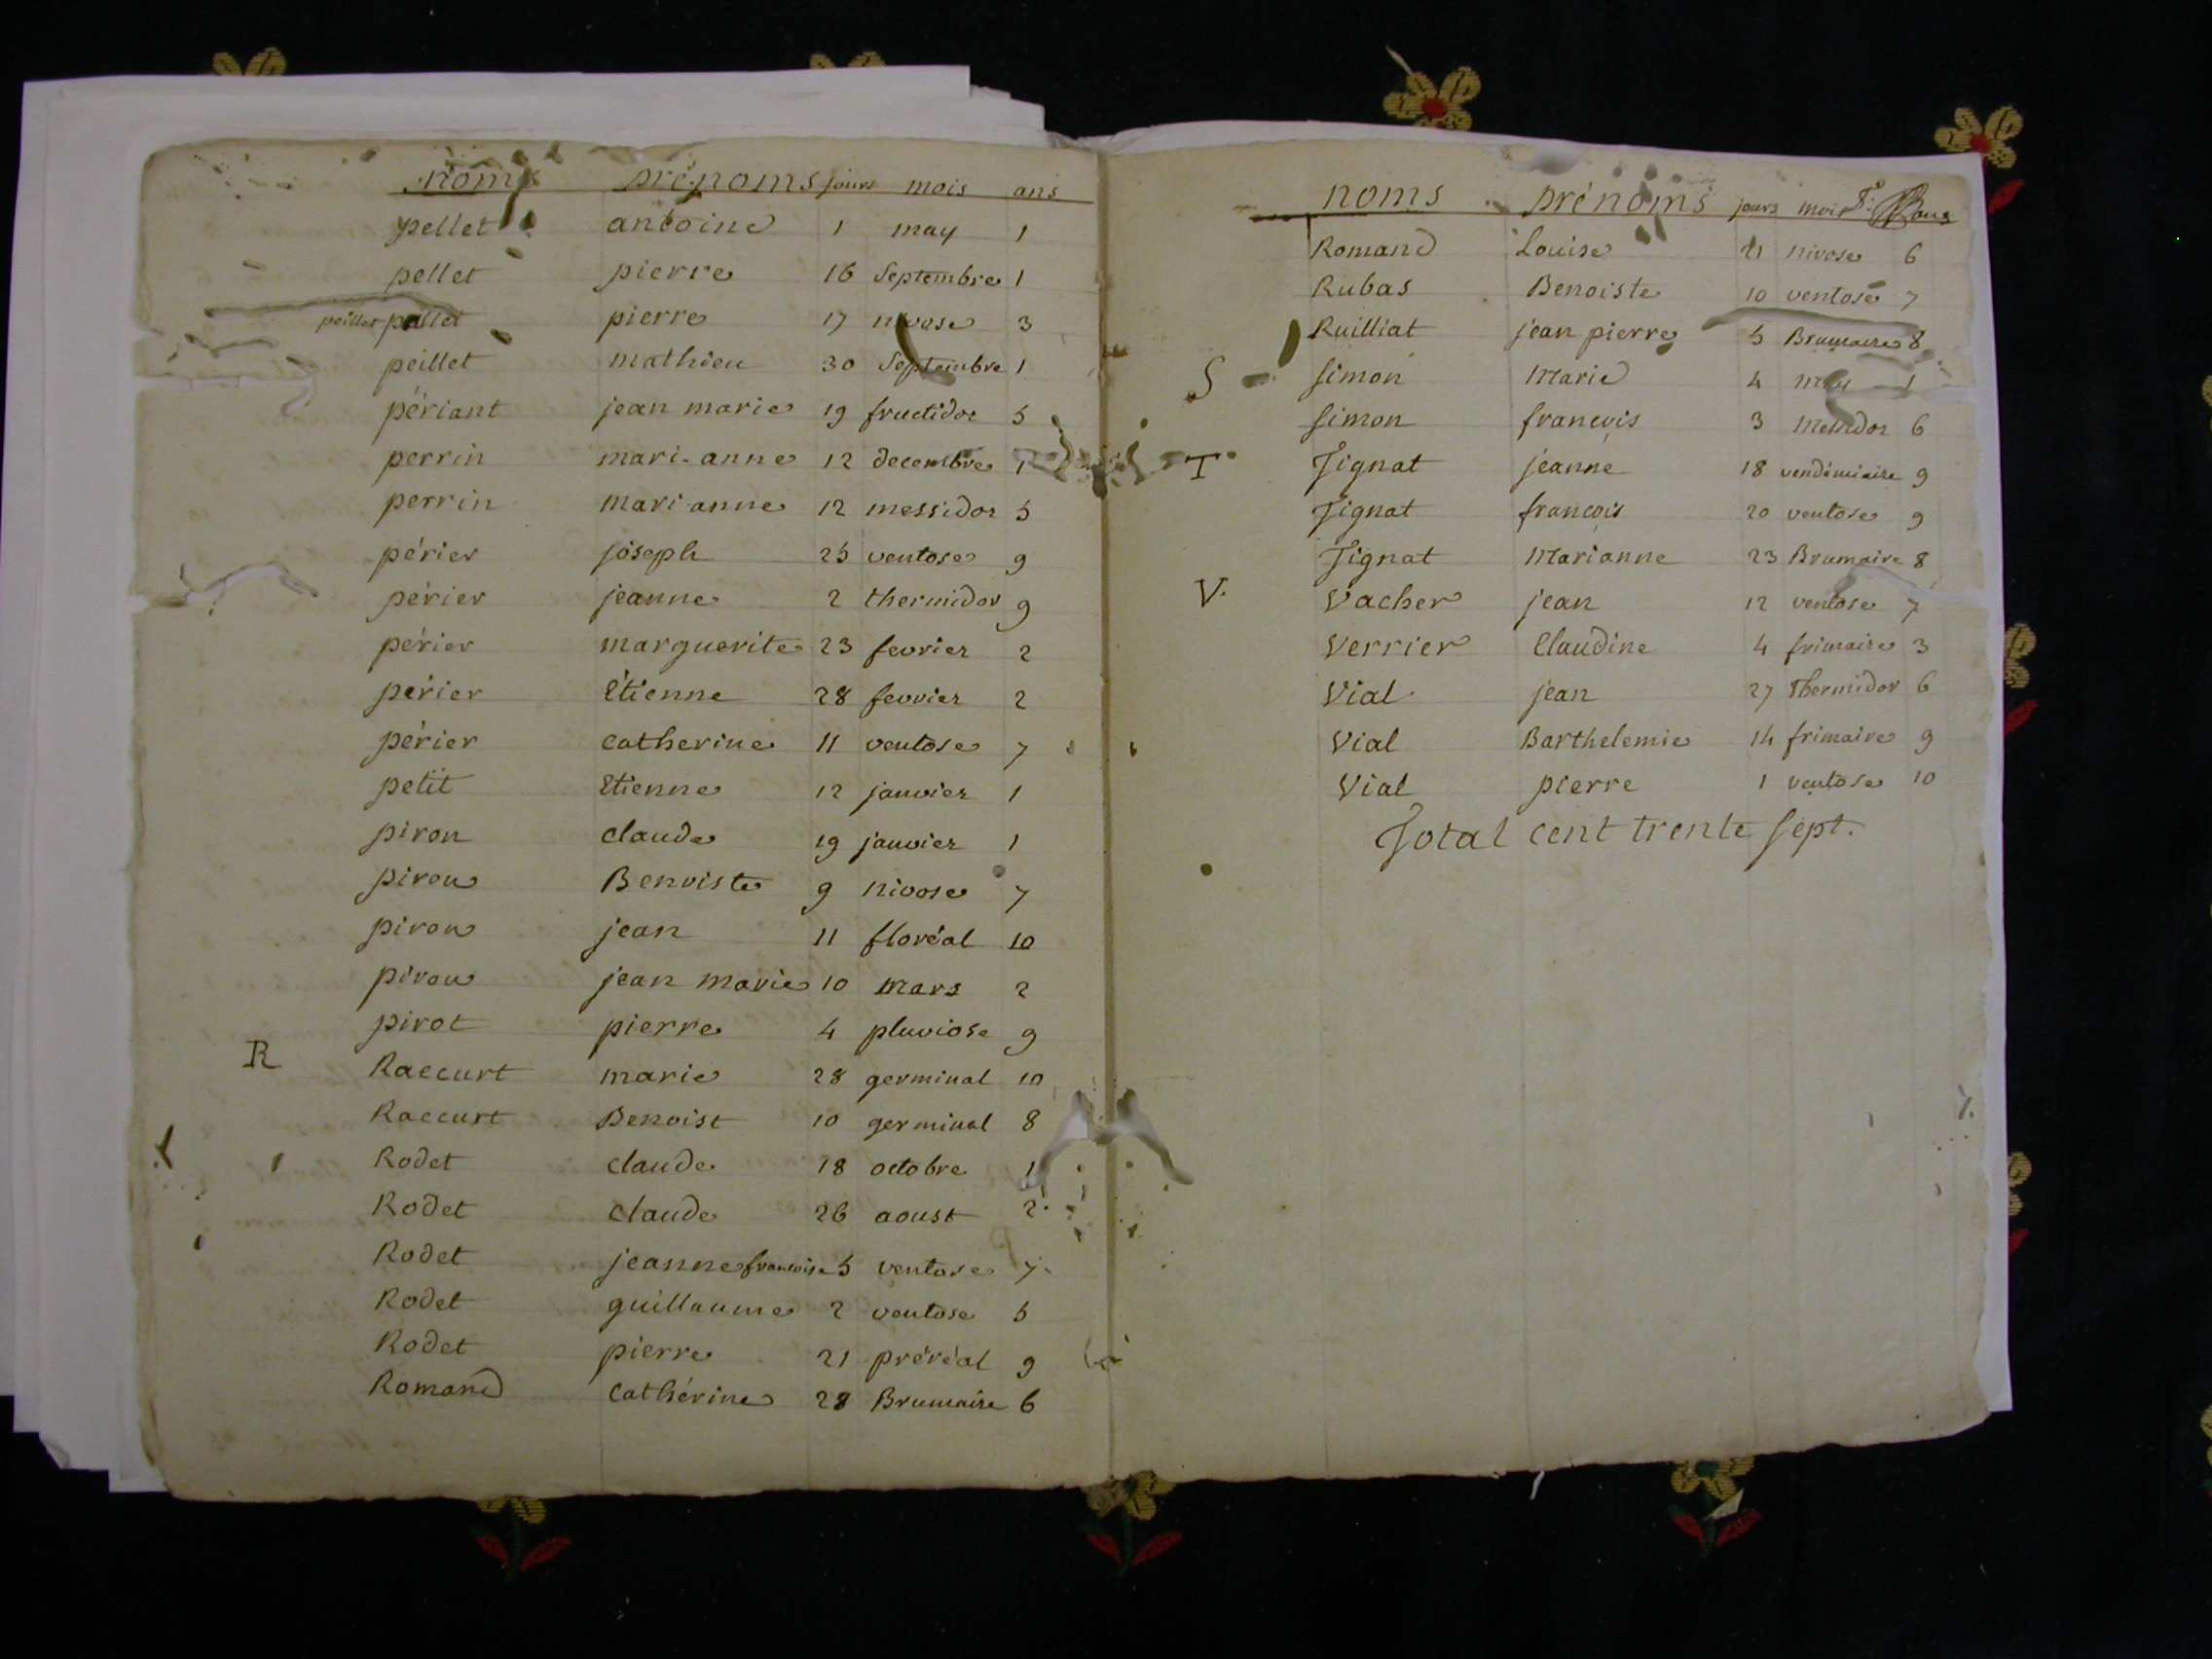 noms prénoms jours mois ans
pellet antoine 1 may 1
pellet pierre 16 Septembre 1
peillet pellet pierre 17 nivose 3
peillet mathieu 30 Septembre 1
périant jean marie 19 fructidor 5
perrin mari-anne 12 decembre 1
perrin mari-anne 12 messidor 5
périer joseph 25 ventose 9
périer jeanne 2 thermidor 9
périer marguerite 23 fevrier 2
périer Etienne 28 fevrier 2
périer catherine 11 ventose 7
petit Etienne 12 janvier 1
piron claude 19 janvier 1
piron Benoiste 9 nivose 7
piron jean 11 floréal 10
piron jean marie 10 mars 2
pirot pierre 4 pluviose 9
R
Raccurt marie 28 germinal 10
Raccurt Benoist 10 germinal 8
Rodet claude 18 octobre 1
Rodet claude 26 aoust 2
Rodet jeanne francoise 5 ventose 7
Rodet guillaume 2 ventose 5
Rodet pierre 21 préréal 9
Romand Cathérine 28 Brumaire 6
noms prénoms jours mois ans
Romand Louise 21 nivose 6
Rubas Benoiste 10 ventose 7
Ruilliat jean pierre 5 Brumaire 8
S Simon Marie 4 may 1
Simon francois 3 Messidor 6
T Tignat jeanne 18 vendémiaire 9
Tignat francois 20 ventose 9
Tignat Marianne 23 Brumaire 8
V. Vacher jean 12 ventose 7
Verrier Claudine 4 frimaire 3
Vial jean 27 Thermidor 6
Vial Barthelemie 14 frimaire 9
Vial pierre 1 ventose 10
Total cent trente sept.